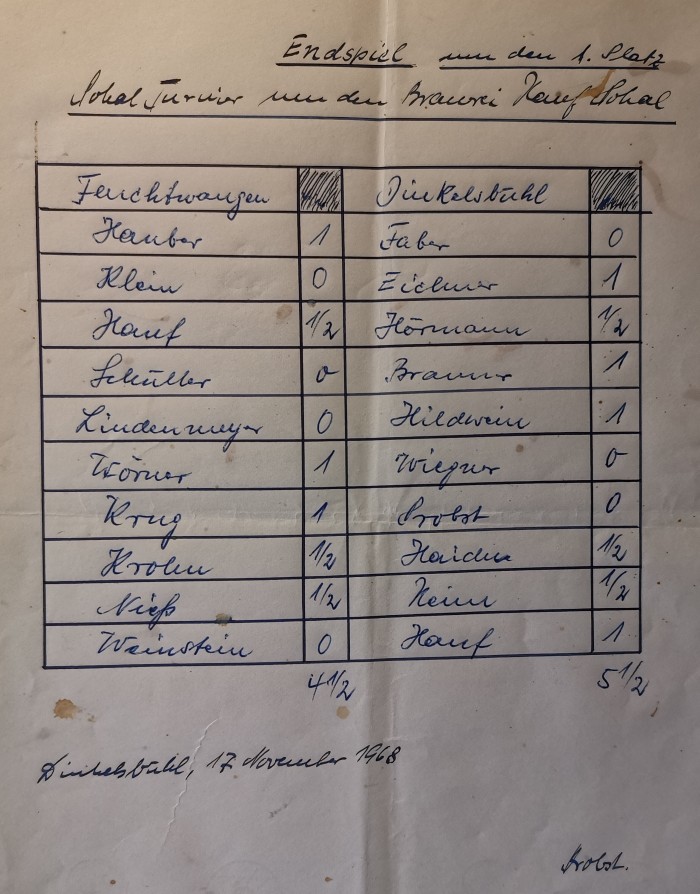 Endspiel um den 1. Platz
Pokal Turnier um den Brauerei Hauf Pokal
Feuchtwangen Dinkelsbühl
Hauber 1 Faber 0
Klein 0 Eichner 1
Hauf 1/2 Hörmann 1/2
Schüller 0 Brauner 1
Lindenmeyer 0 Hildwein 1
Törner 1 Wiegner 0
Krug 1 Probst 0
Krohn 1/2 1/2
Nieß 1/2 Heim 1/2
Weinstein 0 Hauf 1
4 1/2 5 1/2
Dinkelsbühl, 17 November 1968
Probst.